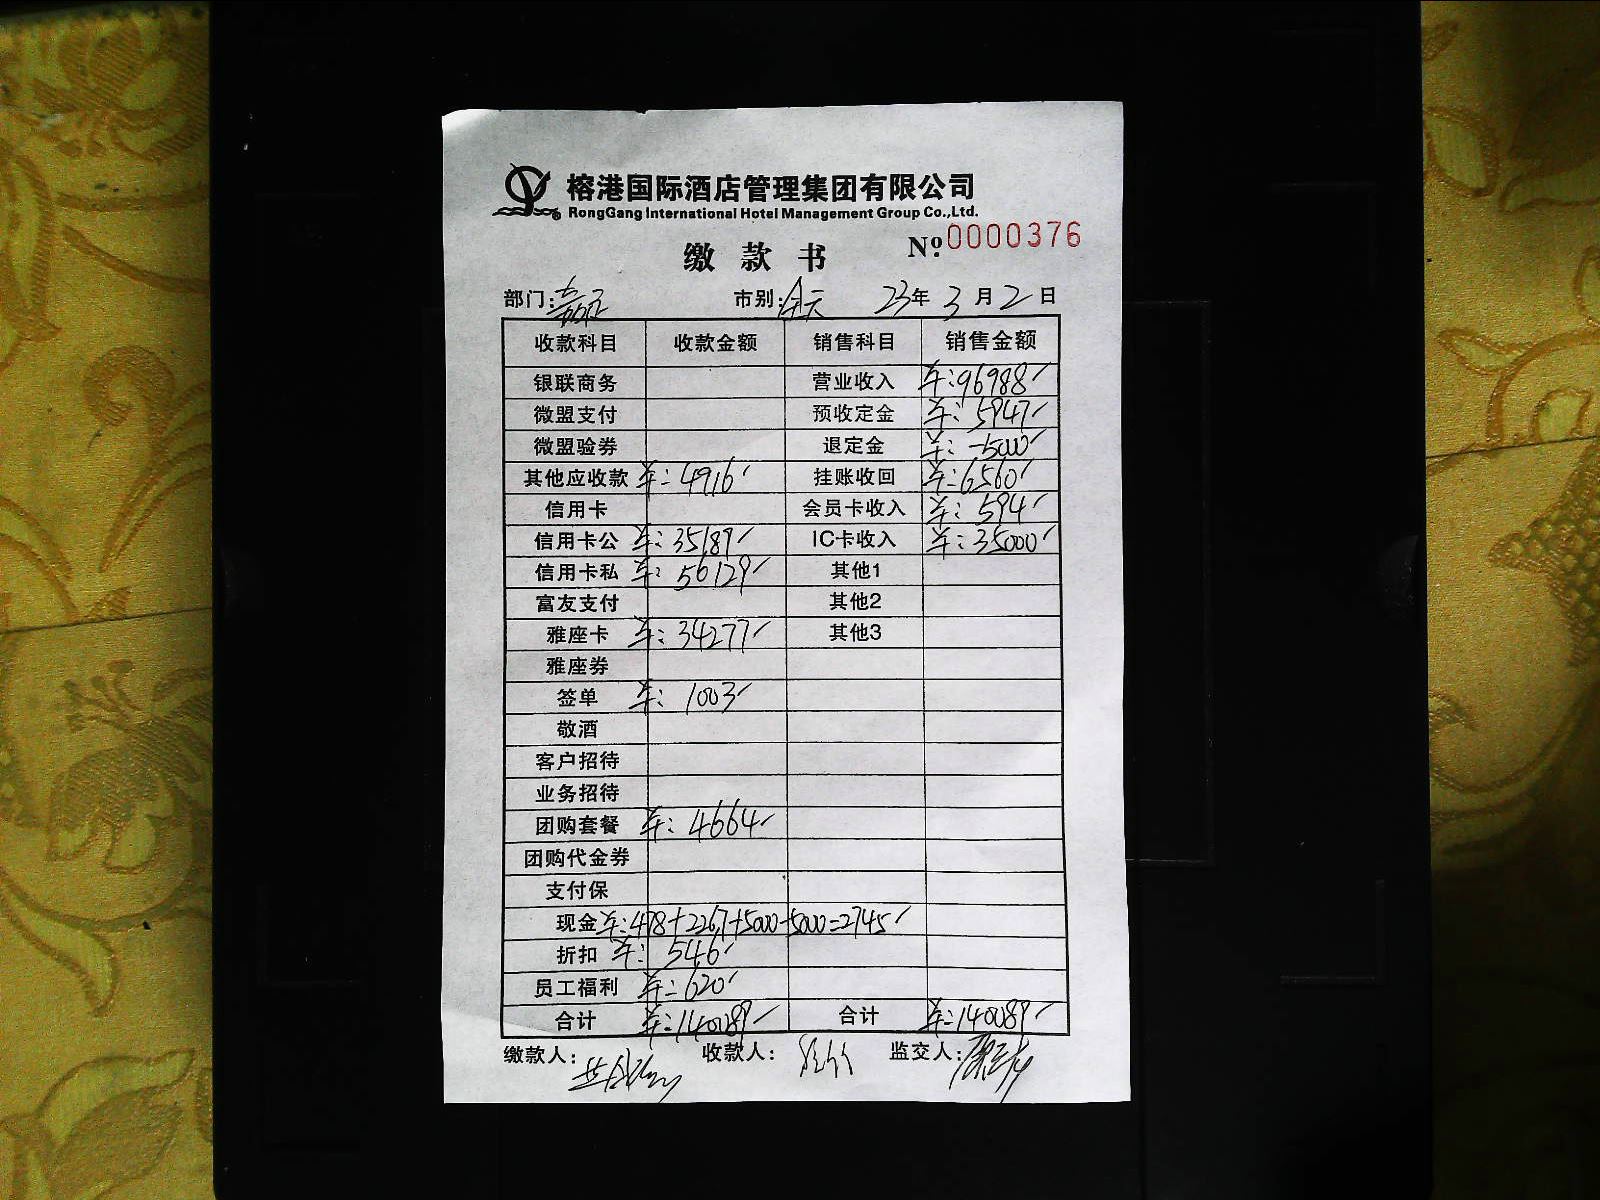 榕港国际酒店管理集团有限公司
RongGang International Hotel Management Group Co.,Ltd.
缴款书 №:0000376
部门: 市别:全天 23年3月2日
收款科目 收款金额 销售科目 销售金额
银联商务 营业收入 ¥:96988
微盟支付 预收定金 ¥:5947
微盟验券 退定金 ¥:-5000
其他应收款 ¥:4916 挂账收回 ¥:6560
信用卡 会员卡收入 ¥:594
信用卡公 ¥:35189 IC卡收入 ¥:35000
信用卡私 ¥:56129 其他1
富友支付 其他2
雅座卡 ¥:34277 其他3
雅座券
签单 ¥:1003
敬酒
客户招待
业务招待
团购套餐 ¥:4664
团购代金券
支付保
现金 ¥:478+2267+5000-5000=2745
折扣 ¥:546
员工福利 ¥:620
合计 ¥:140089 合计 ¥:140089
缴款人: 收款人: 监交人: